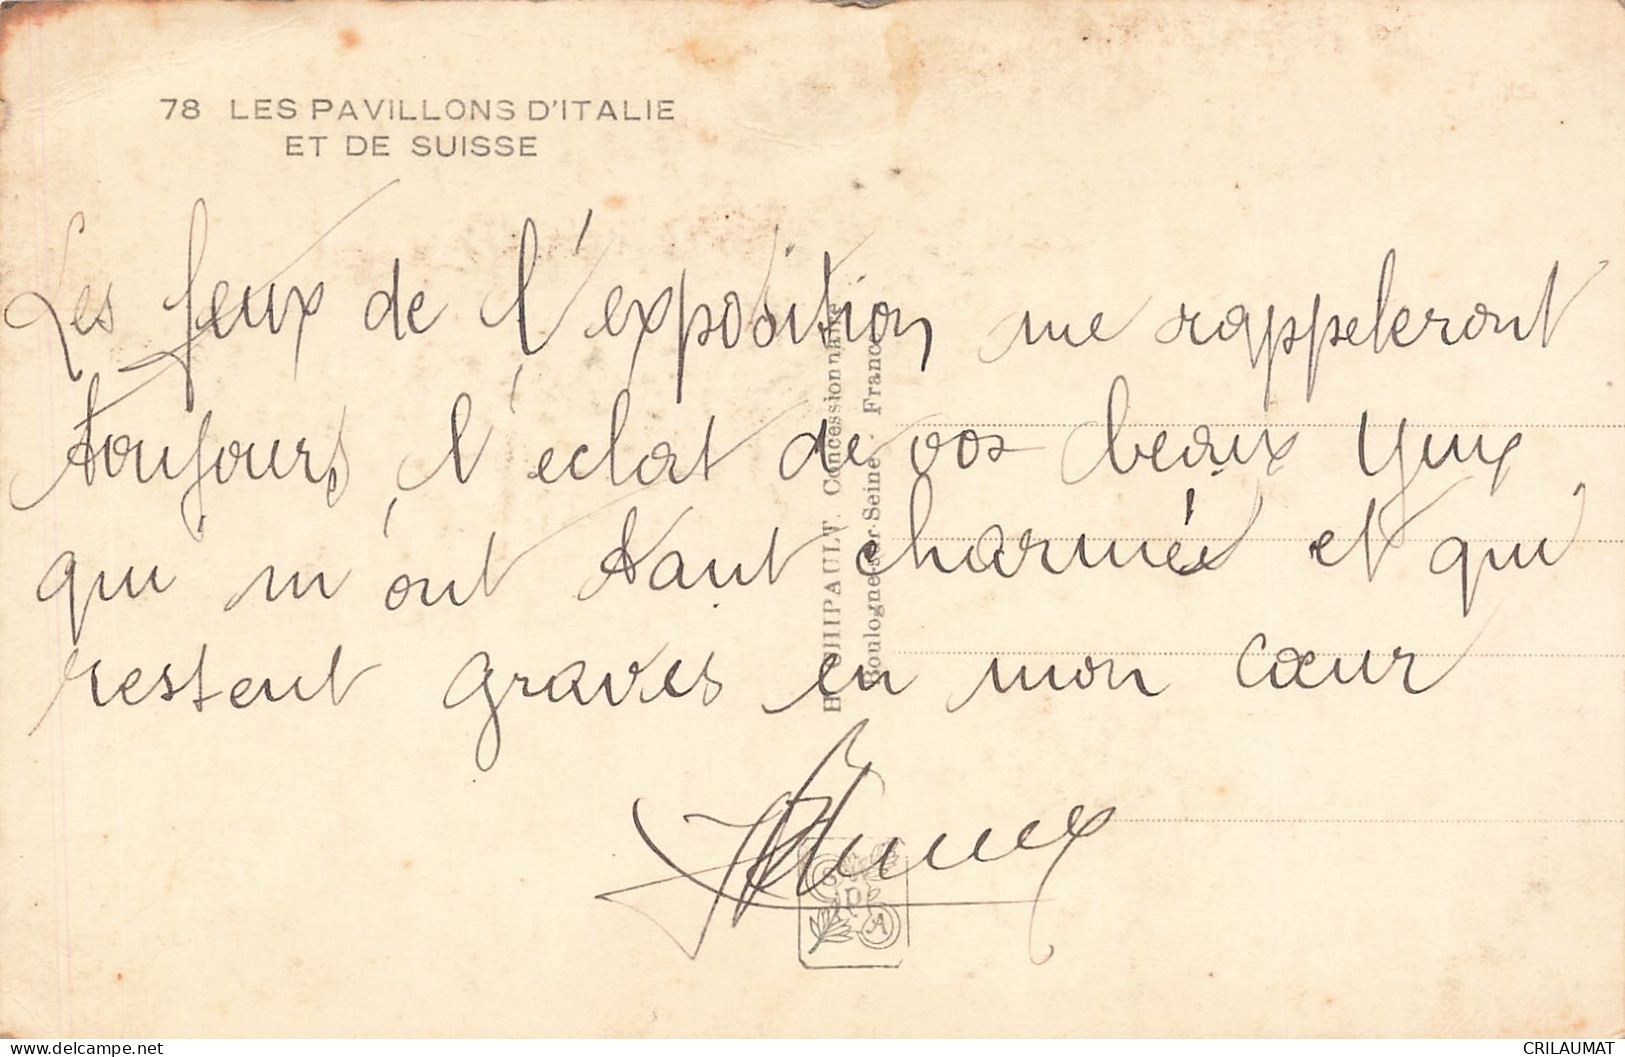 78 LES PAVILLONS D'ITALIE
ET DE SUISSE
Les feux de l'exposition me rappeleront
toujours, l'eclat de vos beaux yeux
qui m'ont tant charmés et qui
restent graves en mon cœur
H. CHIPAULT. Concessionnaire
Boulogne-sur-Seine. France
S P A
delcampe.net
CRILAUMAT